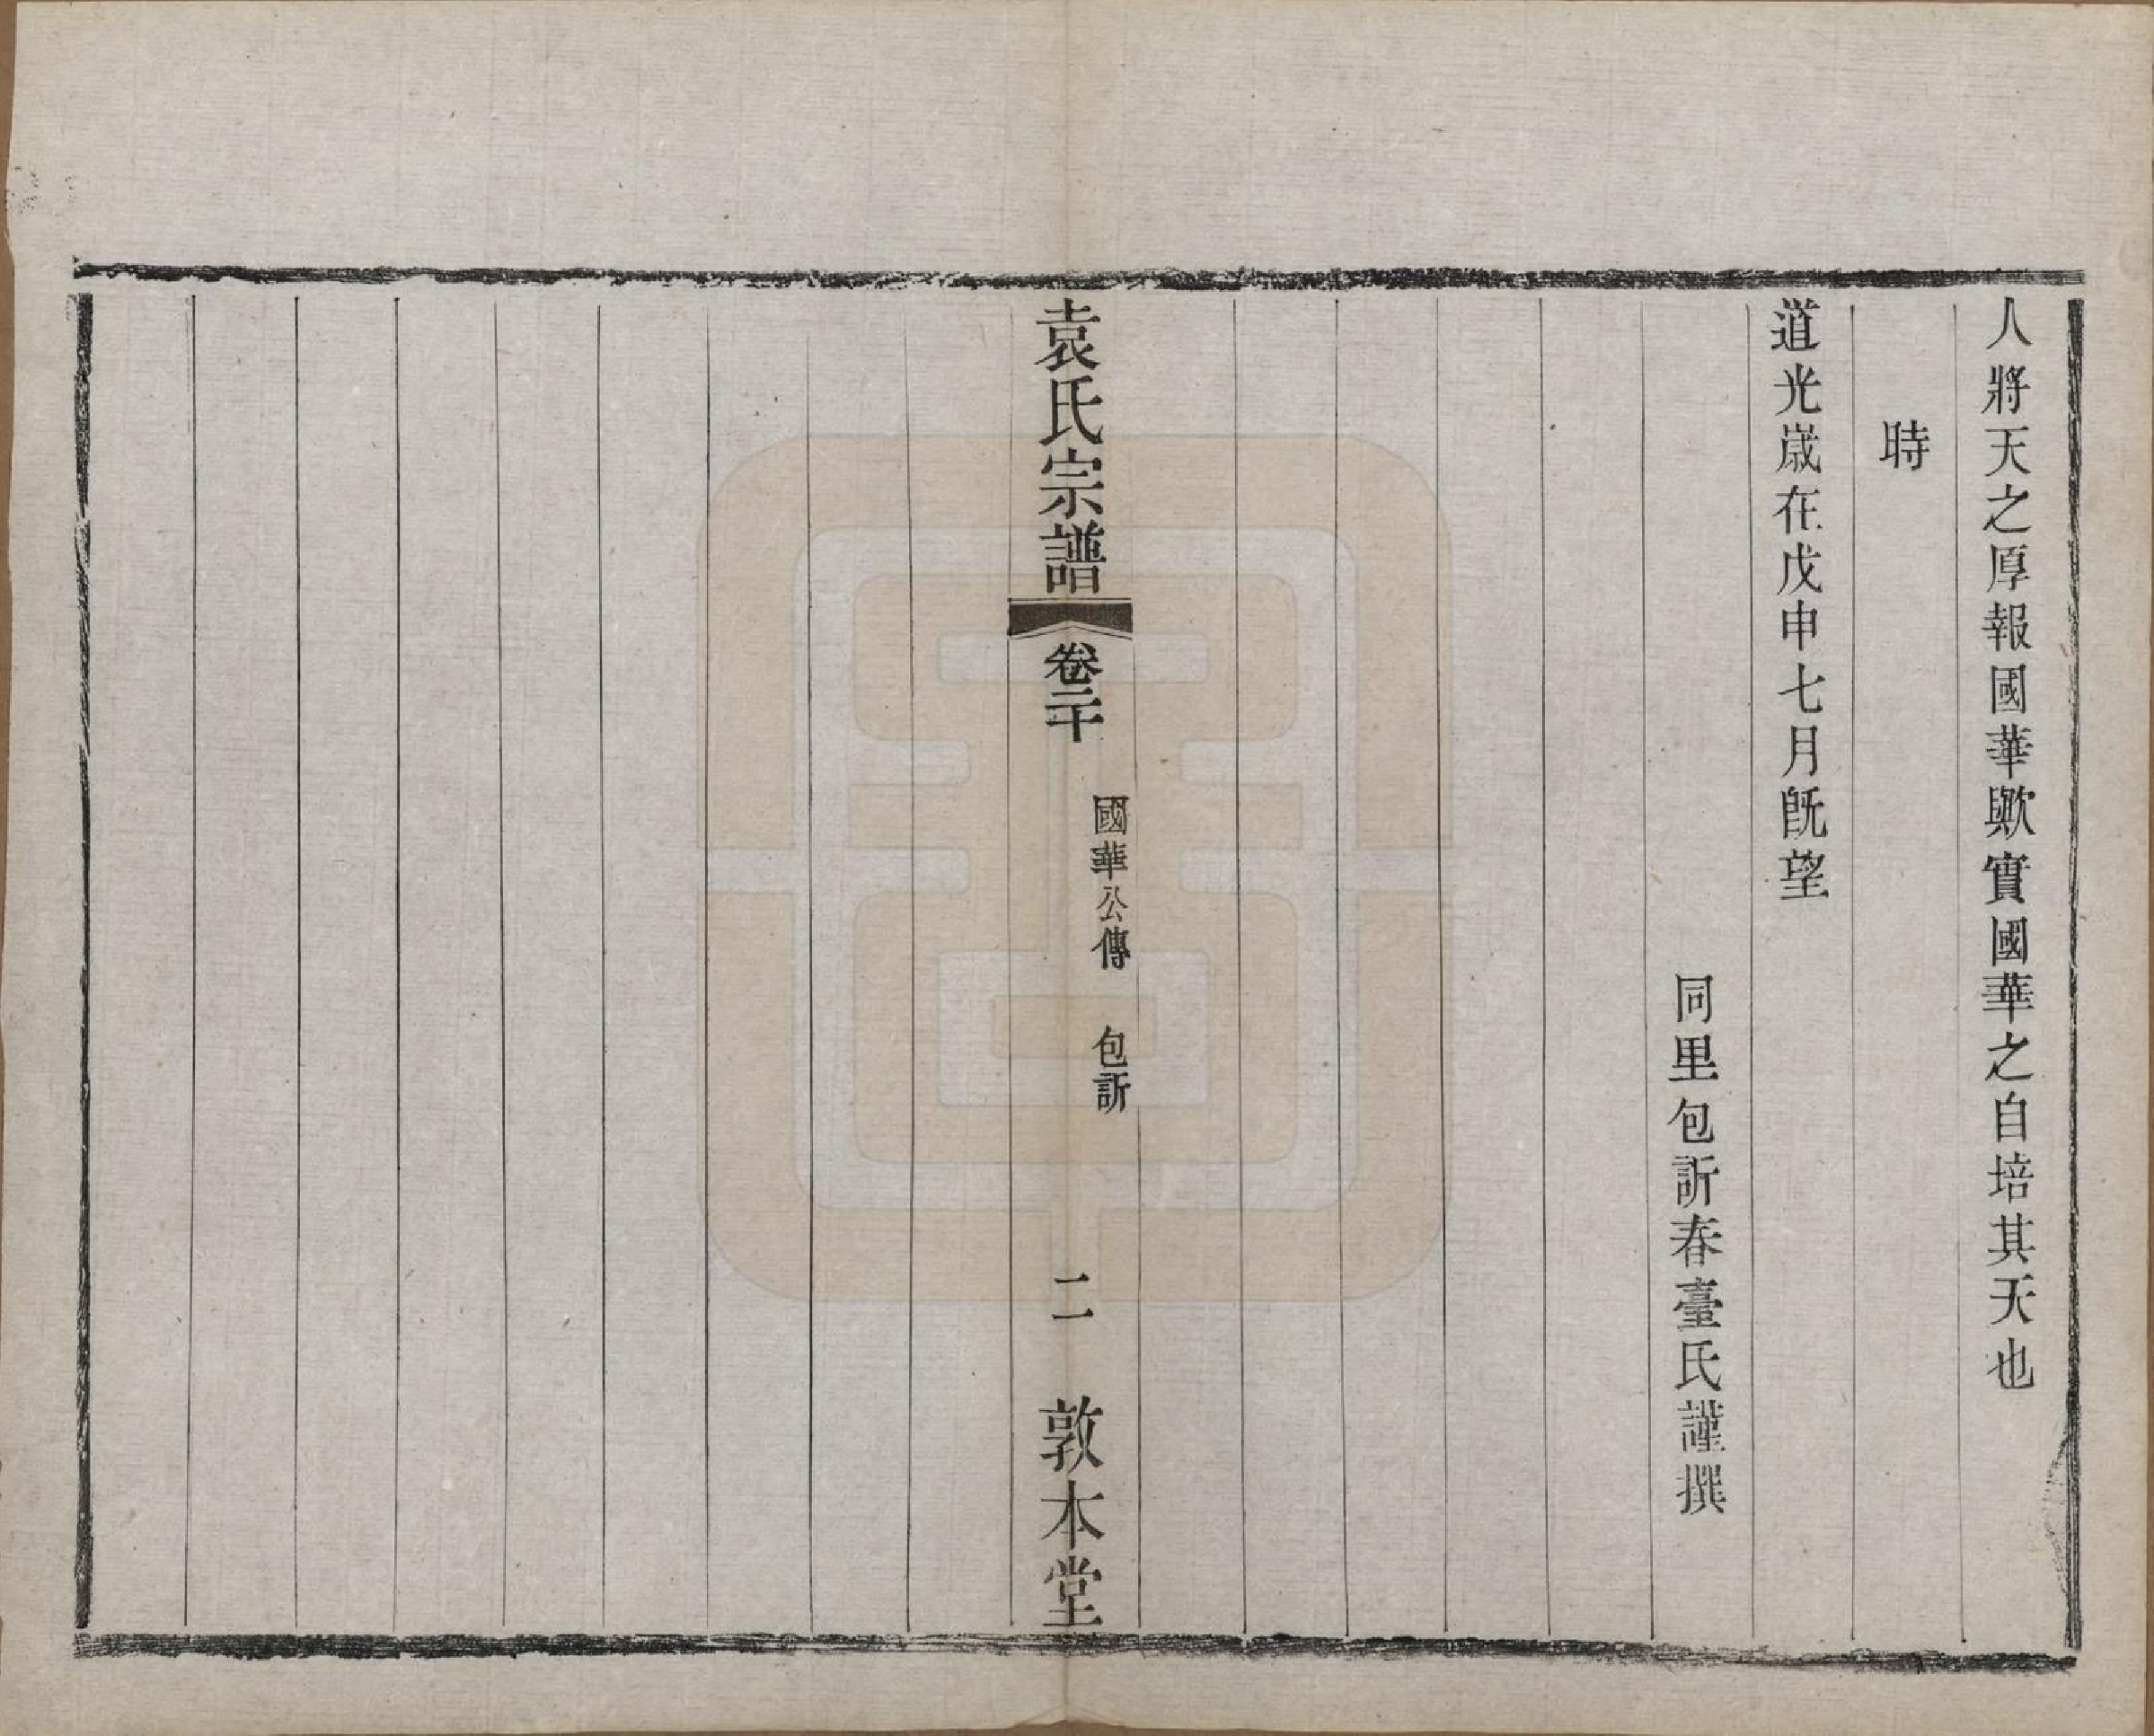 人將天之厚報國華歟實國華之自培其天也
時
道光嵗在戊申七月旣望
同里包訢春臺氏謹撰
袁氏宗譜
卷二十
國華公傳 包訢
二
敦本堂